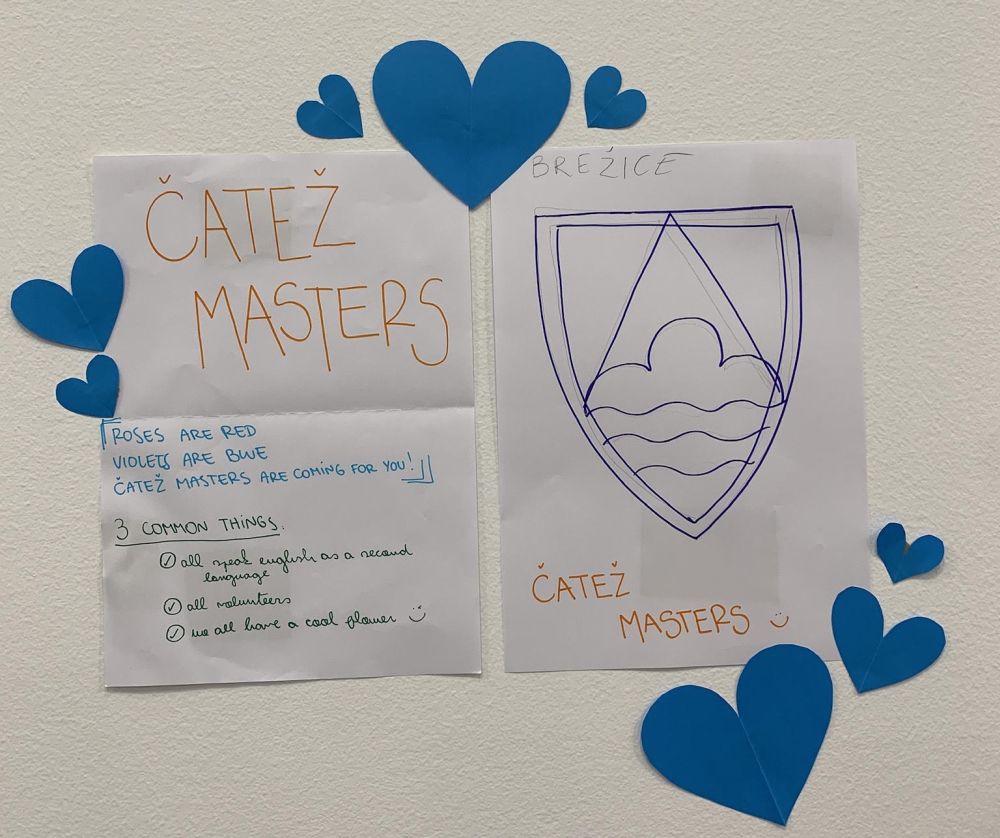 ČATEŽ
MASTERS
ROSES ARE RED
VIOLETS ARE BLUE
ČATEŽ MASTERS ARE COMING FOR YOU!
3 COMMON THINGS:
all speak english as a second
language
all volunteers
we all have a cool flower
BREŽICE
ČATEŽ
MASTERS